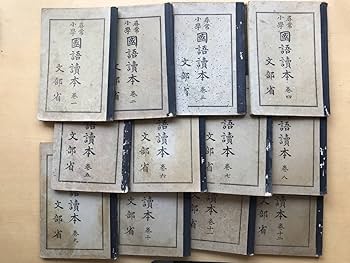 尋常
小學
國語讀本 卷一
文部省
尋常
小學
國語讀本 卷二
文部省
尋常
小學
國語讀本 卷三
文部省
尋常
小學
國語讀本 卷四
文部省
語讀本 卷五
文部省
語讀本 卷六
文部省
語讀本 卷七
文部省
語讀本 卷八
文部省
讀本 卷九
文部省
讀本 卷十
文部省
讀本 卷十一
文部省
讀本 卷十二
文部省